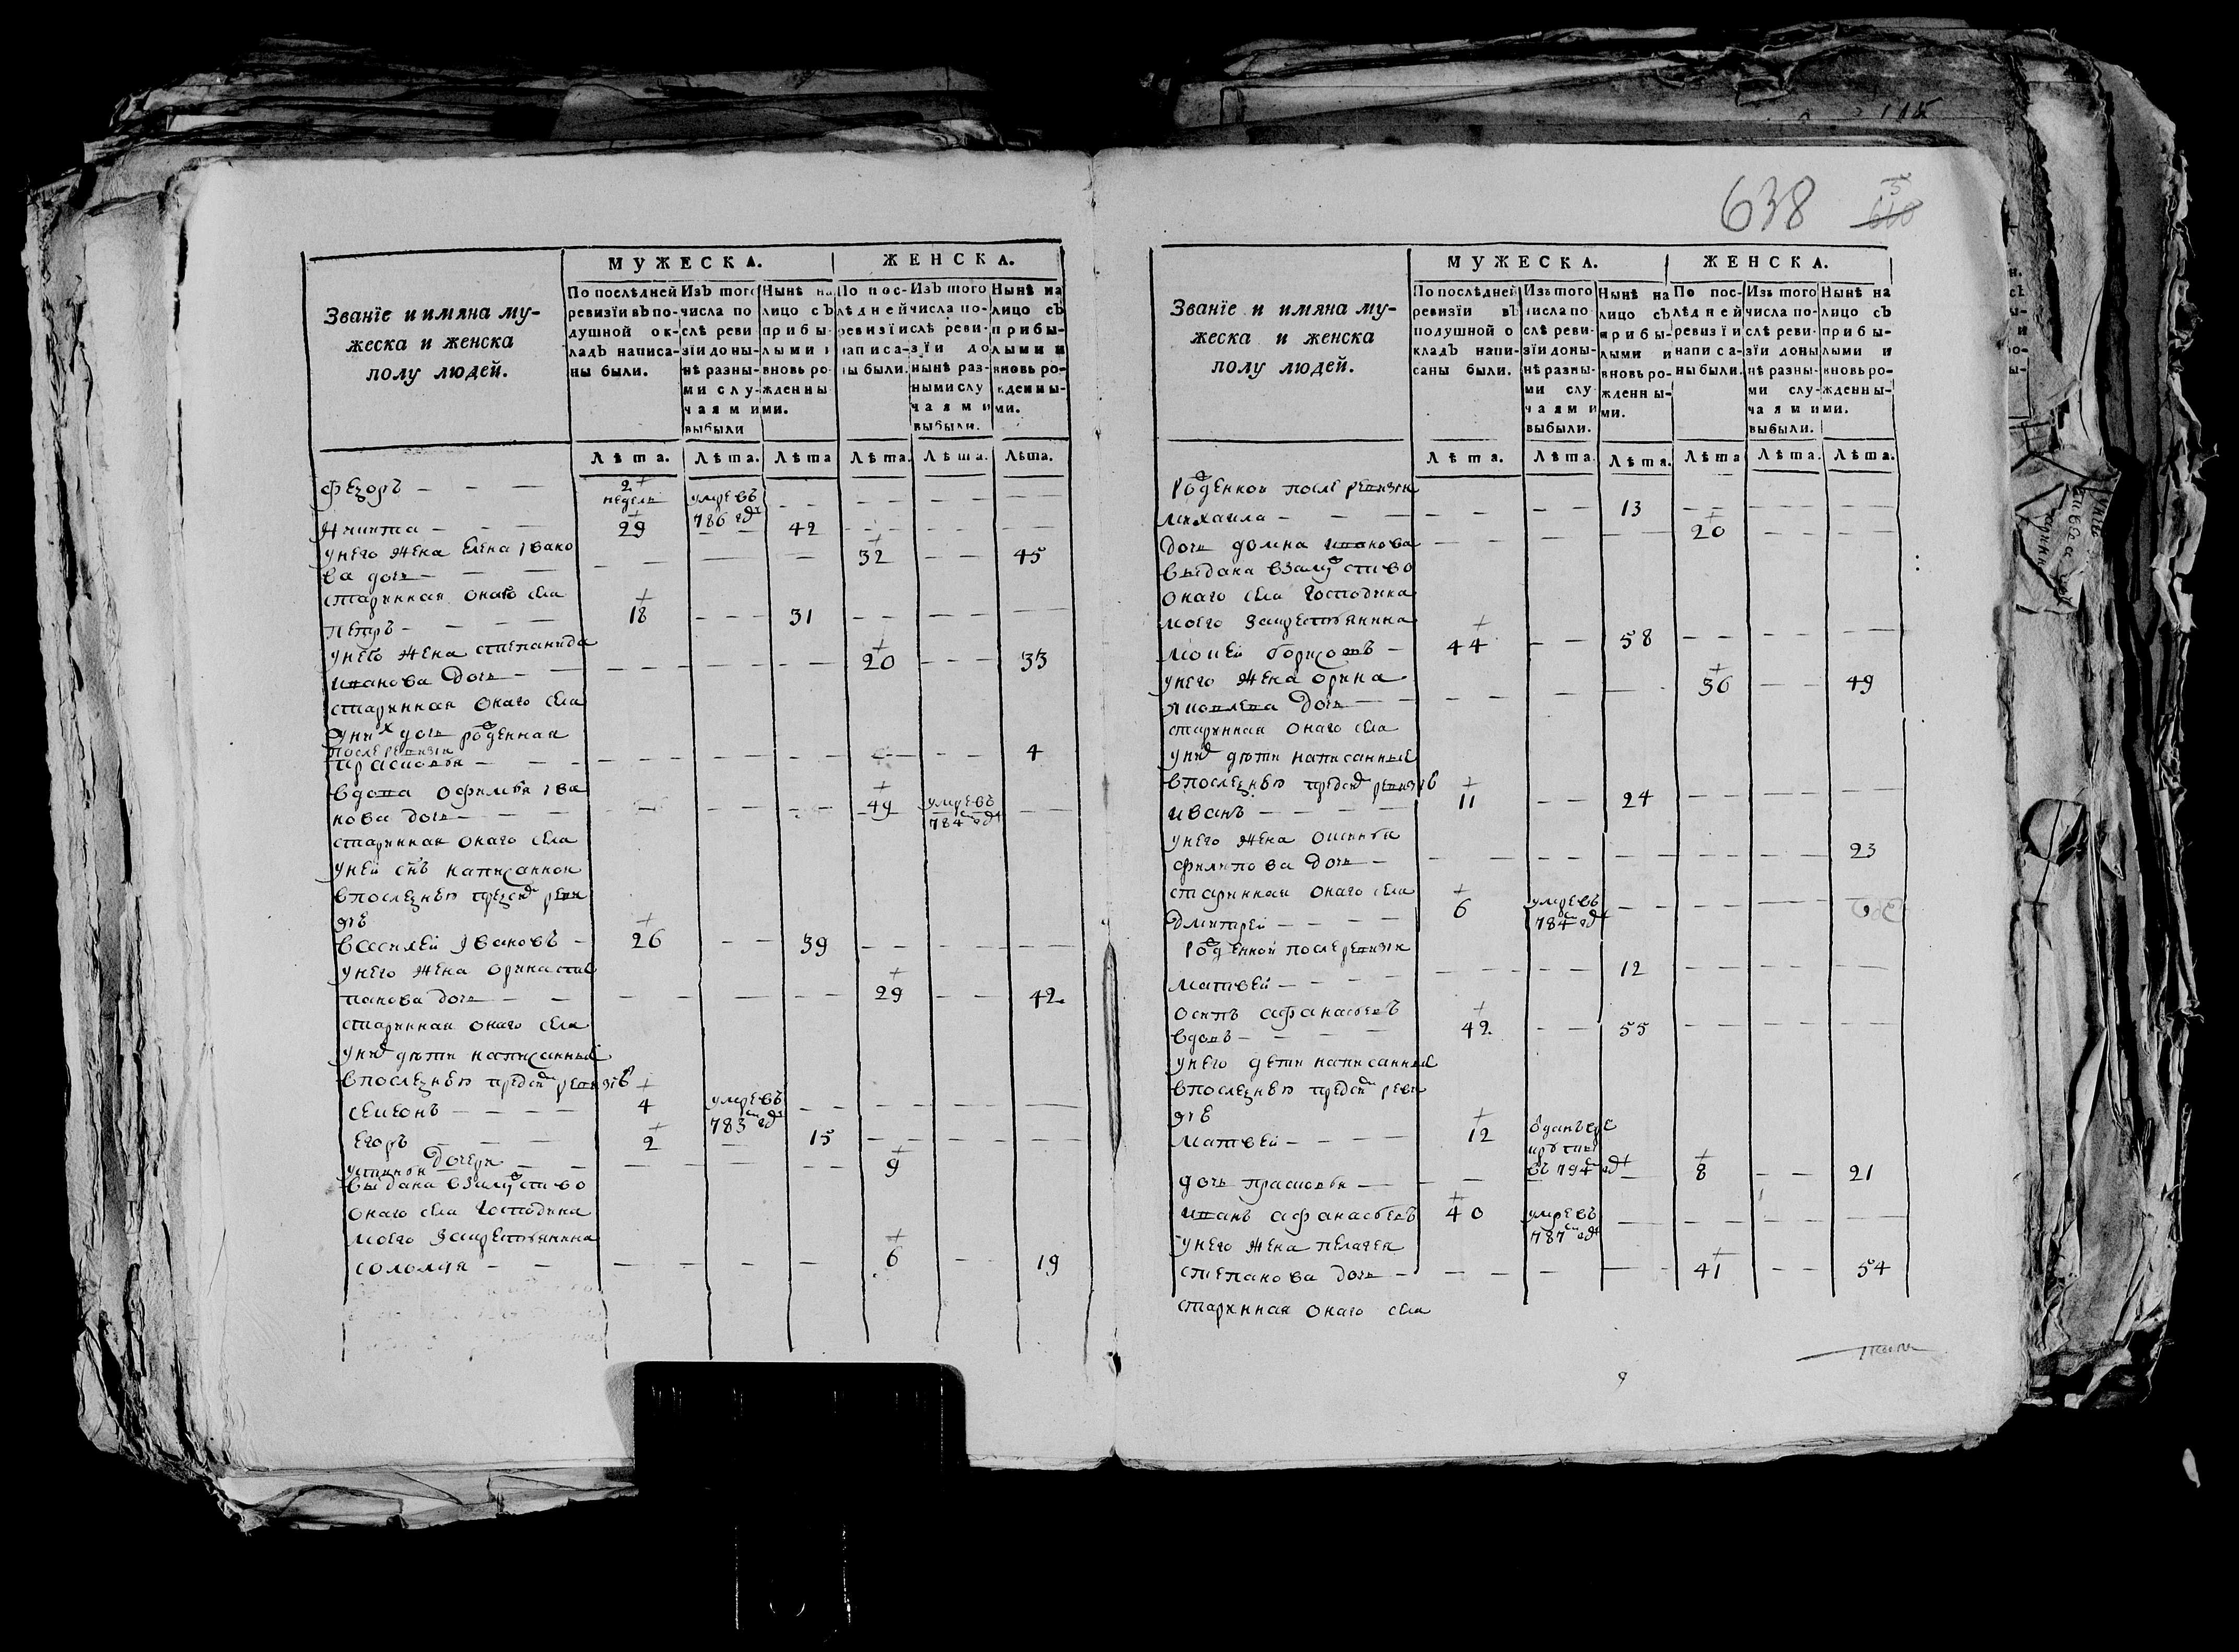 638
МУЖЕСКА. ЖЕНСКА.
Званїе и имяна му-
жеска и женска
полу людей.
По послѣдней ревизїи въ по-душной ок-ладъ написа-ны были.
Изъ того числа по слѣ реви зїи до ны-нѣ разны-ми слу-чаями выбыли
Нынѣ на лицо съ прибы-лыми и вновь ро-жденны ми.
По пос-лѣдней ревизїи написа-ны были.
Изъ того числа по-слѣ реви-зїи до нынѣ раз-ными слу чаями выбыли.
Нынѣ на лицо съ прибы-лыми и вновь ро-жденны-ми.
Лѣта. Лѣта. Лѣта Лѣта. Лѣта. Лѣта.
Федоръ 2 недели умре въ 786 году
Никита 29 42
у него жена Елена Івано
ва дочь 32 45
старинная онаго села
Петръ 18 31
у него жена Степанида
Иванова дочь 20 33
старинная онаго села
у них дочь рожденная
после ревизии
Прасковья 4
вдова Офимья Ива
нова дочь 49 умре въ 784м году
старинная онаго села
у ней снъ написанной
в последнею пред сим реви
зие
Василей Ивановъ 26 39
у него жена Орина Сте
панова дочь 29 42
старинная онаго села
у них дети написанные
в последнею пред сим ревизие
Семенъ 4 умре въ 783м году
Егоръ 2 15
дочери
Устинья 9
выдана в замужство
онаго села господина
моего за крестьянина
Соломея 6 19
МУЖЕСКА. ЖЕНСКА.
Званїе и имяна му-
жеска и женска
полу людей.
По послѣдней ревизїи въ подушной о кладъ напи-саны были.
Изъ того числа по-слѣ реви-зїи до ны-нѣ разны-ми слу-чаями выбыли.
Нынѣ на лицо съ прибы-лыми и вновь ро-жденны-ми.
По пос-лѣдней ревизїи написа-ны были.
Изъ того числа по-слѣ реви-зїи до ны нѣ разны-ми слу-чаями выбыли.
Нынѣ на лицо съ прибы-лыми и вновь ро-жденны-ми.
Лѣта. Лѣта. Лѣта. Лѣта Лѣта. Лѣта.
Рожденной после ревизии
Михаила 13
дочь Домна Иванова 20
выдана в замужство
онаго села господина
моего за крестьянина
Мокей Борисовъ 44 58
у него жена Орина
Яковлева дочь 36 49
старинная онаго села
у них дети написанные
в последнею пред сим ревизие
Иванъ 11 24
у него жена Оксинья
Филипова дочь 23
старинная онаго села
Дмитрей 6 умре въ 784м году
Рожденной после ревизии
Матвей 12
Осипъ Афанасьевъ
вдовъ 42 55
у него дети написанные
в последнею пред сим реви
зие
Матвей 12 отданъ в рекруты въ 794м году
дочь Прасковья 8 21
Иванъ Афанасьевъ 40 умре въ 787м году
у него жена Пелагея
Степанова дочь 41 54
старинная онаго села